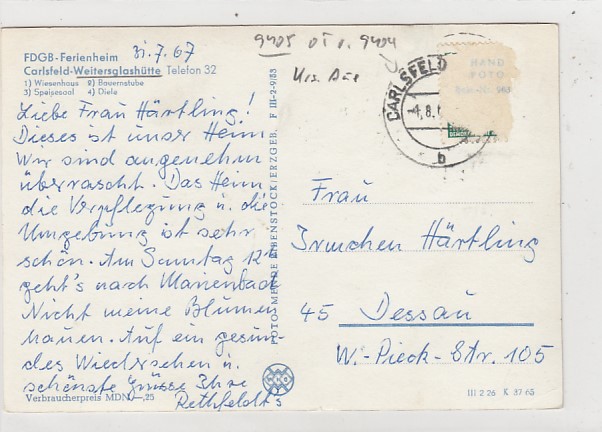 FDGB-Ferienheim 31.7.67
Carlsfeld-Weitersglashütte Telefon 32
1) Wiesenhaus 2) Bauernstube
3) Speisesaal 4) Diele
Liebe Frau Härtling!
Dieses ist unser Heim
Wir sind angenehm
überrascht. Das Heim
die Verpflegung u. die
Umgebung ist sehr
schön. Am Samstag 12h
geht's nach Marienbad
Nicht meine Blumen
hauen. Auf ein gesun-
des Wiedersehen u.
schönste Grüsse Ihre
Rethfeldt's
Verbraucherpreis MDN -,25
FOTO-MENDE EIBENSTOCK/ERZGEB. F III-2-9/85
9405 OT v. 9404
Krs. Aue
CARLSFELD
-4.8.
b
HAND
FOTO
Frau
Irmchen Härtling
45 Dessau
W.-Pieck-Str. 105
III 2 26 K 37 65